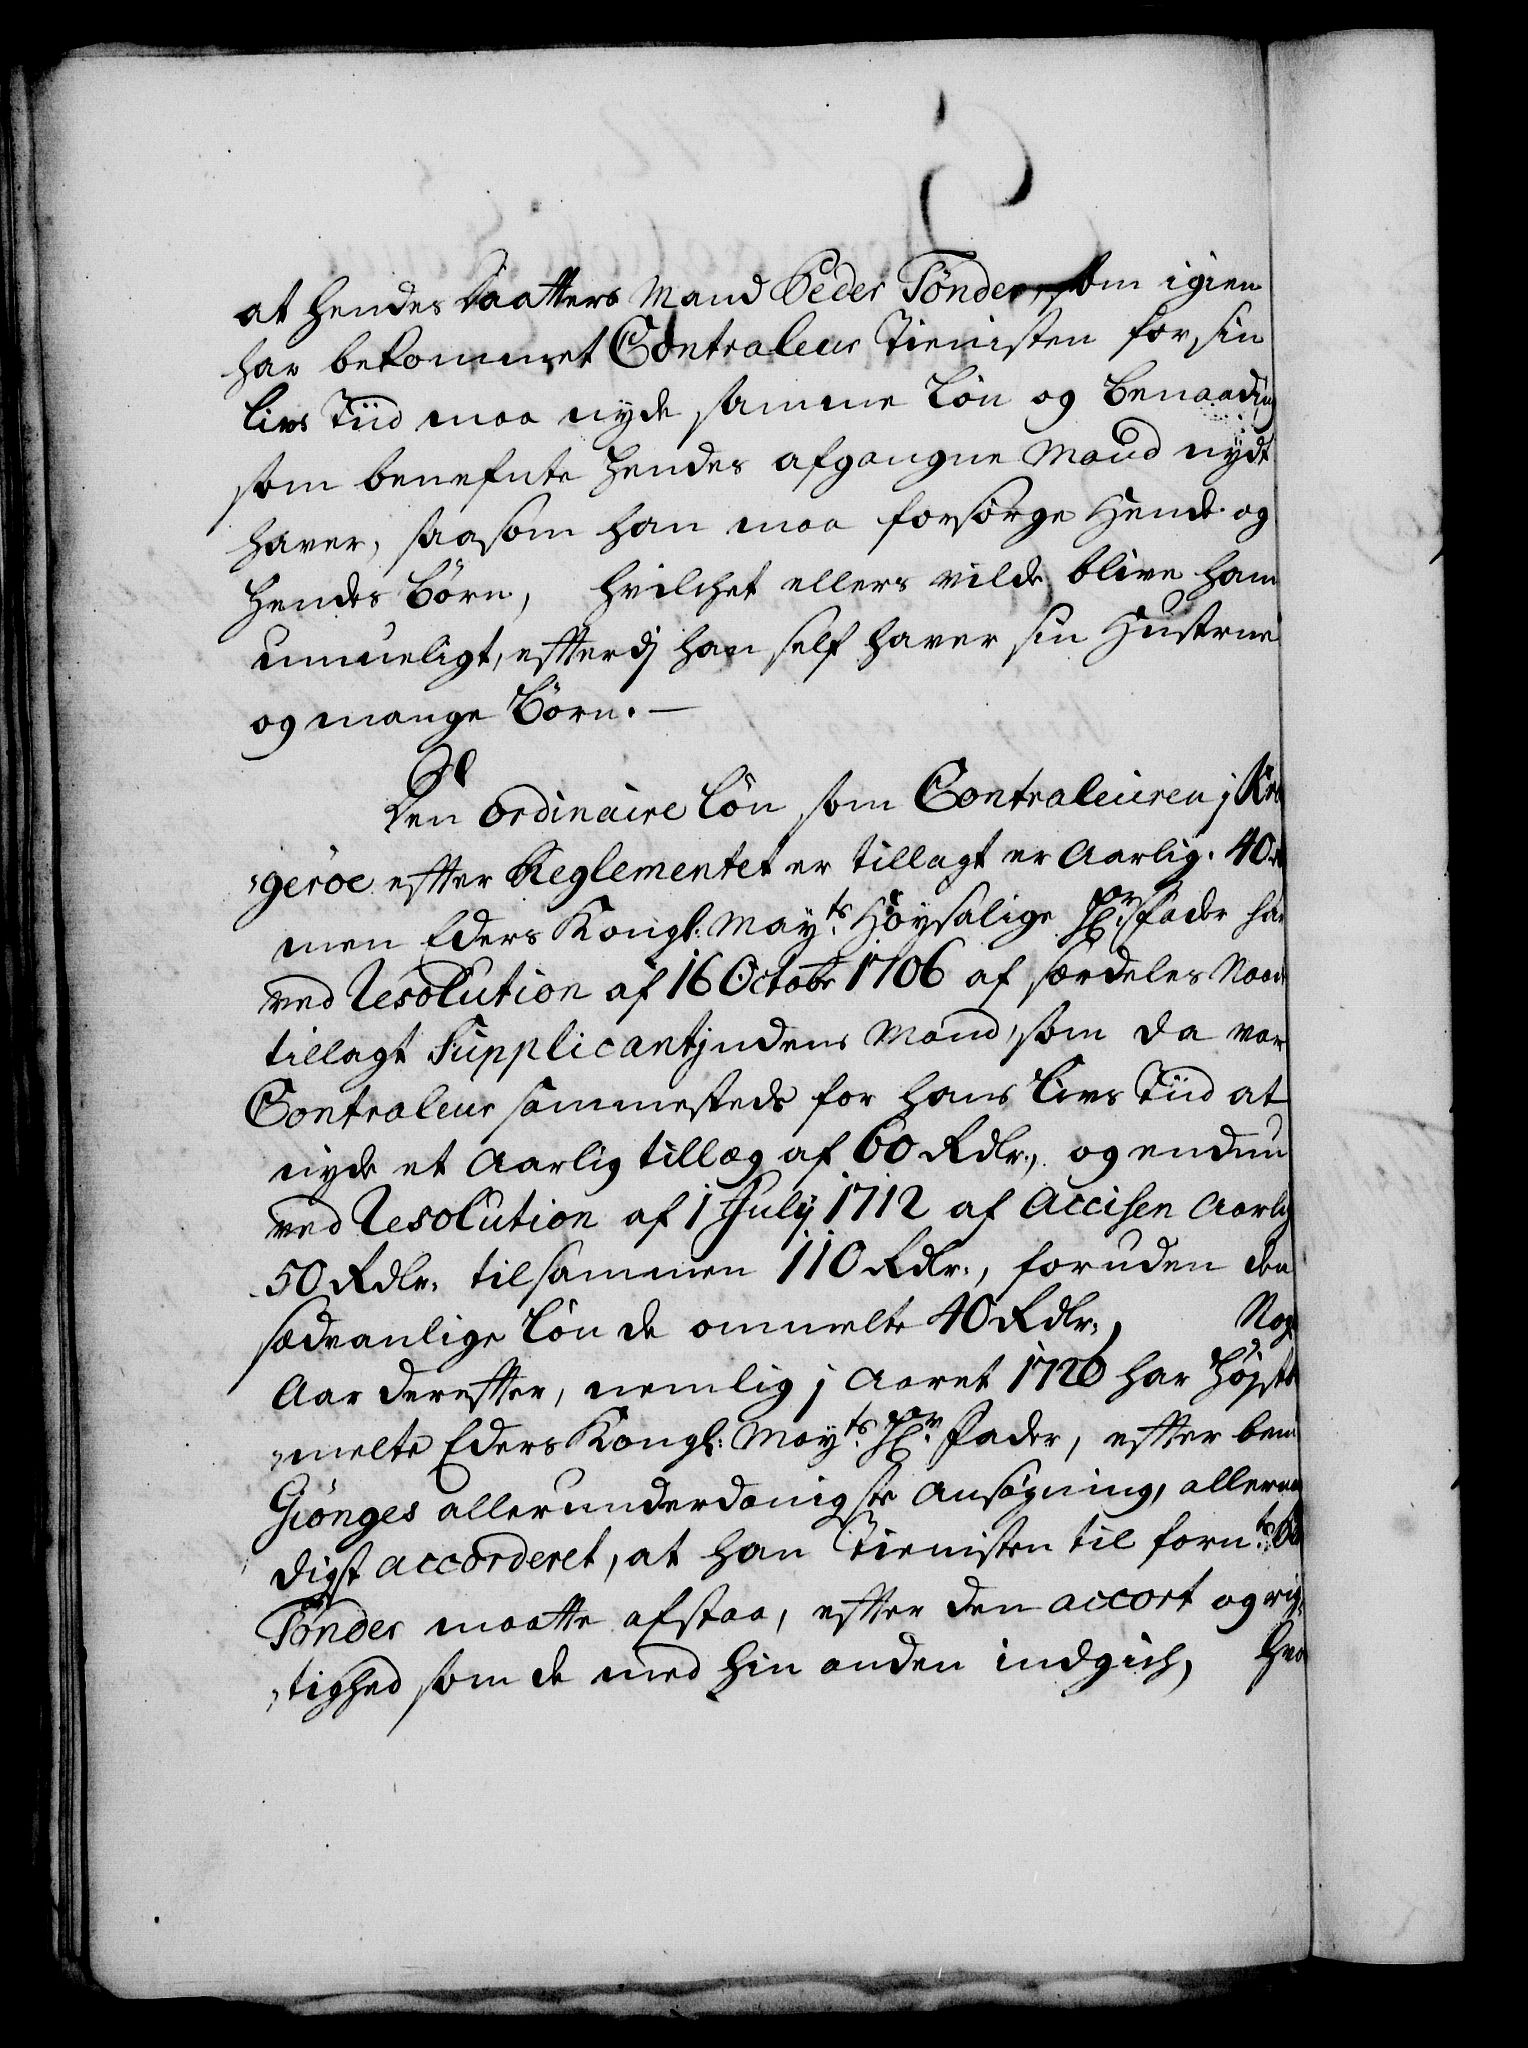 at hendes Daatters Mand Peder Tønder, som igien
har bekommet Contraleur Tienisten for sin
Livs Tiid maa nyde samme Løn og Benaading
som benefnte hendes afgangne Mand nydt
haver, saasom han maa forsørge Hende og
hendes Børn, hvilchet ellers vilde blive ham
umueligt, efterdj han self haver sin Hustrue
og mange Børn. —
Den ordinaire Løn som Contraleuren j Kra
,geröe efter Reglementet er tillagt er Aarlig. 40
men Eders Kongl: May.ts Høysalige Hr. Fader har
ved Resolution af 16 Octobr 1706 af særdeles Naade
tillagt Supplicantjndens Mand, som da var
Contraleur sammesteds for hans Livs Tiid at
nyde et Aarlig tillæg af 60 Rdlr:, og endnu
ved Resolution af 1 July 1712 af Accisen Aarlig
50 Rdlr: tilsammen 110 Rdlr:, foruden den
sædvanlige Løn de ommelte 40 Rdlr:, Nog
Aar derefter, nemlig j Aaret 1726 har Højst
,melte Eders Kongl: May.ts Hr. Fader, efter bem
Giönges allerunderdanigste Ansøgning, allernaa
digst accorderet, at han Tienisten til forn.te
Tønder maatte afstaa, efter den accort og rig,
,tighed som de med hin anden indgich, hva